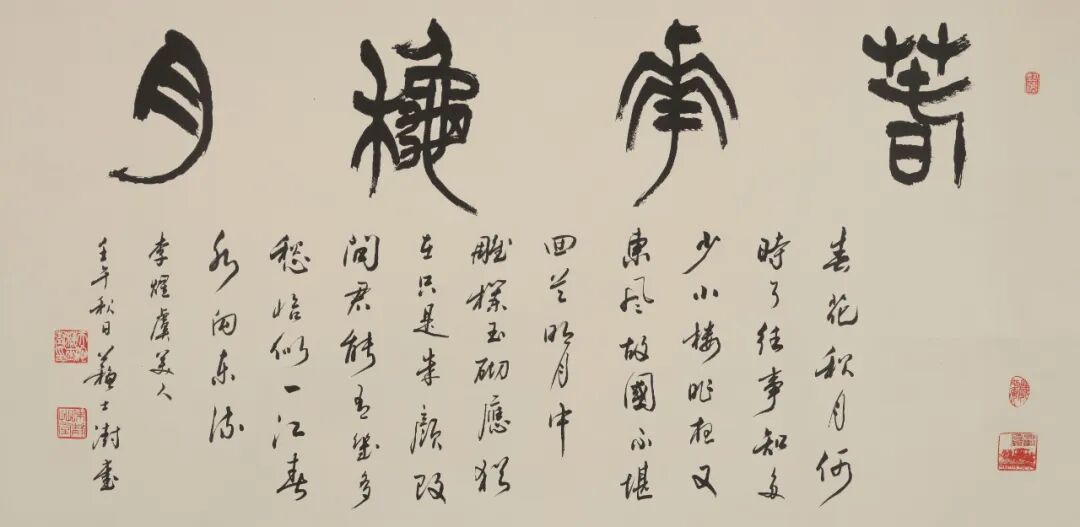 春華秋月
春花秋月何
時了往事知多
少小樓昨夜又
東風故國不堪
回首明月中
雕欄玉砌應猶
在只是朱顏改
問君能有幾多
愁恰似一江春
水向東流
李煜虞美人
壬午秋日蘇士澍書